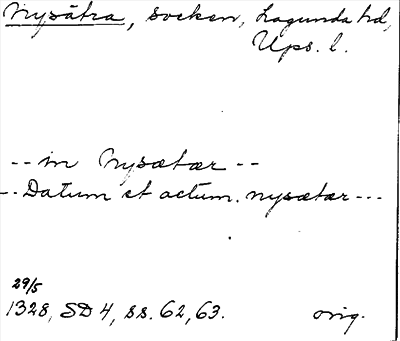 Nysätra, socken, Lagunda hd,
Ups. l.
-- in Nysætær --
-- Datum et actum. nysætær ---
29/5
1328, SD 4, ss. 62, 63. orig.